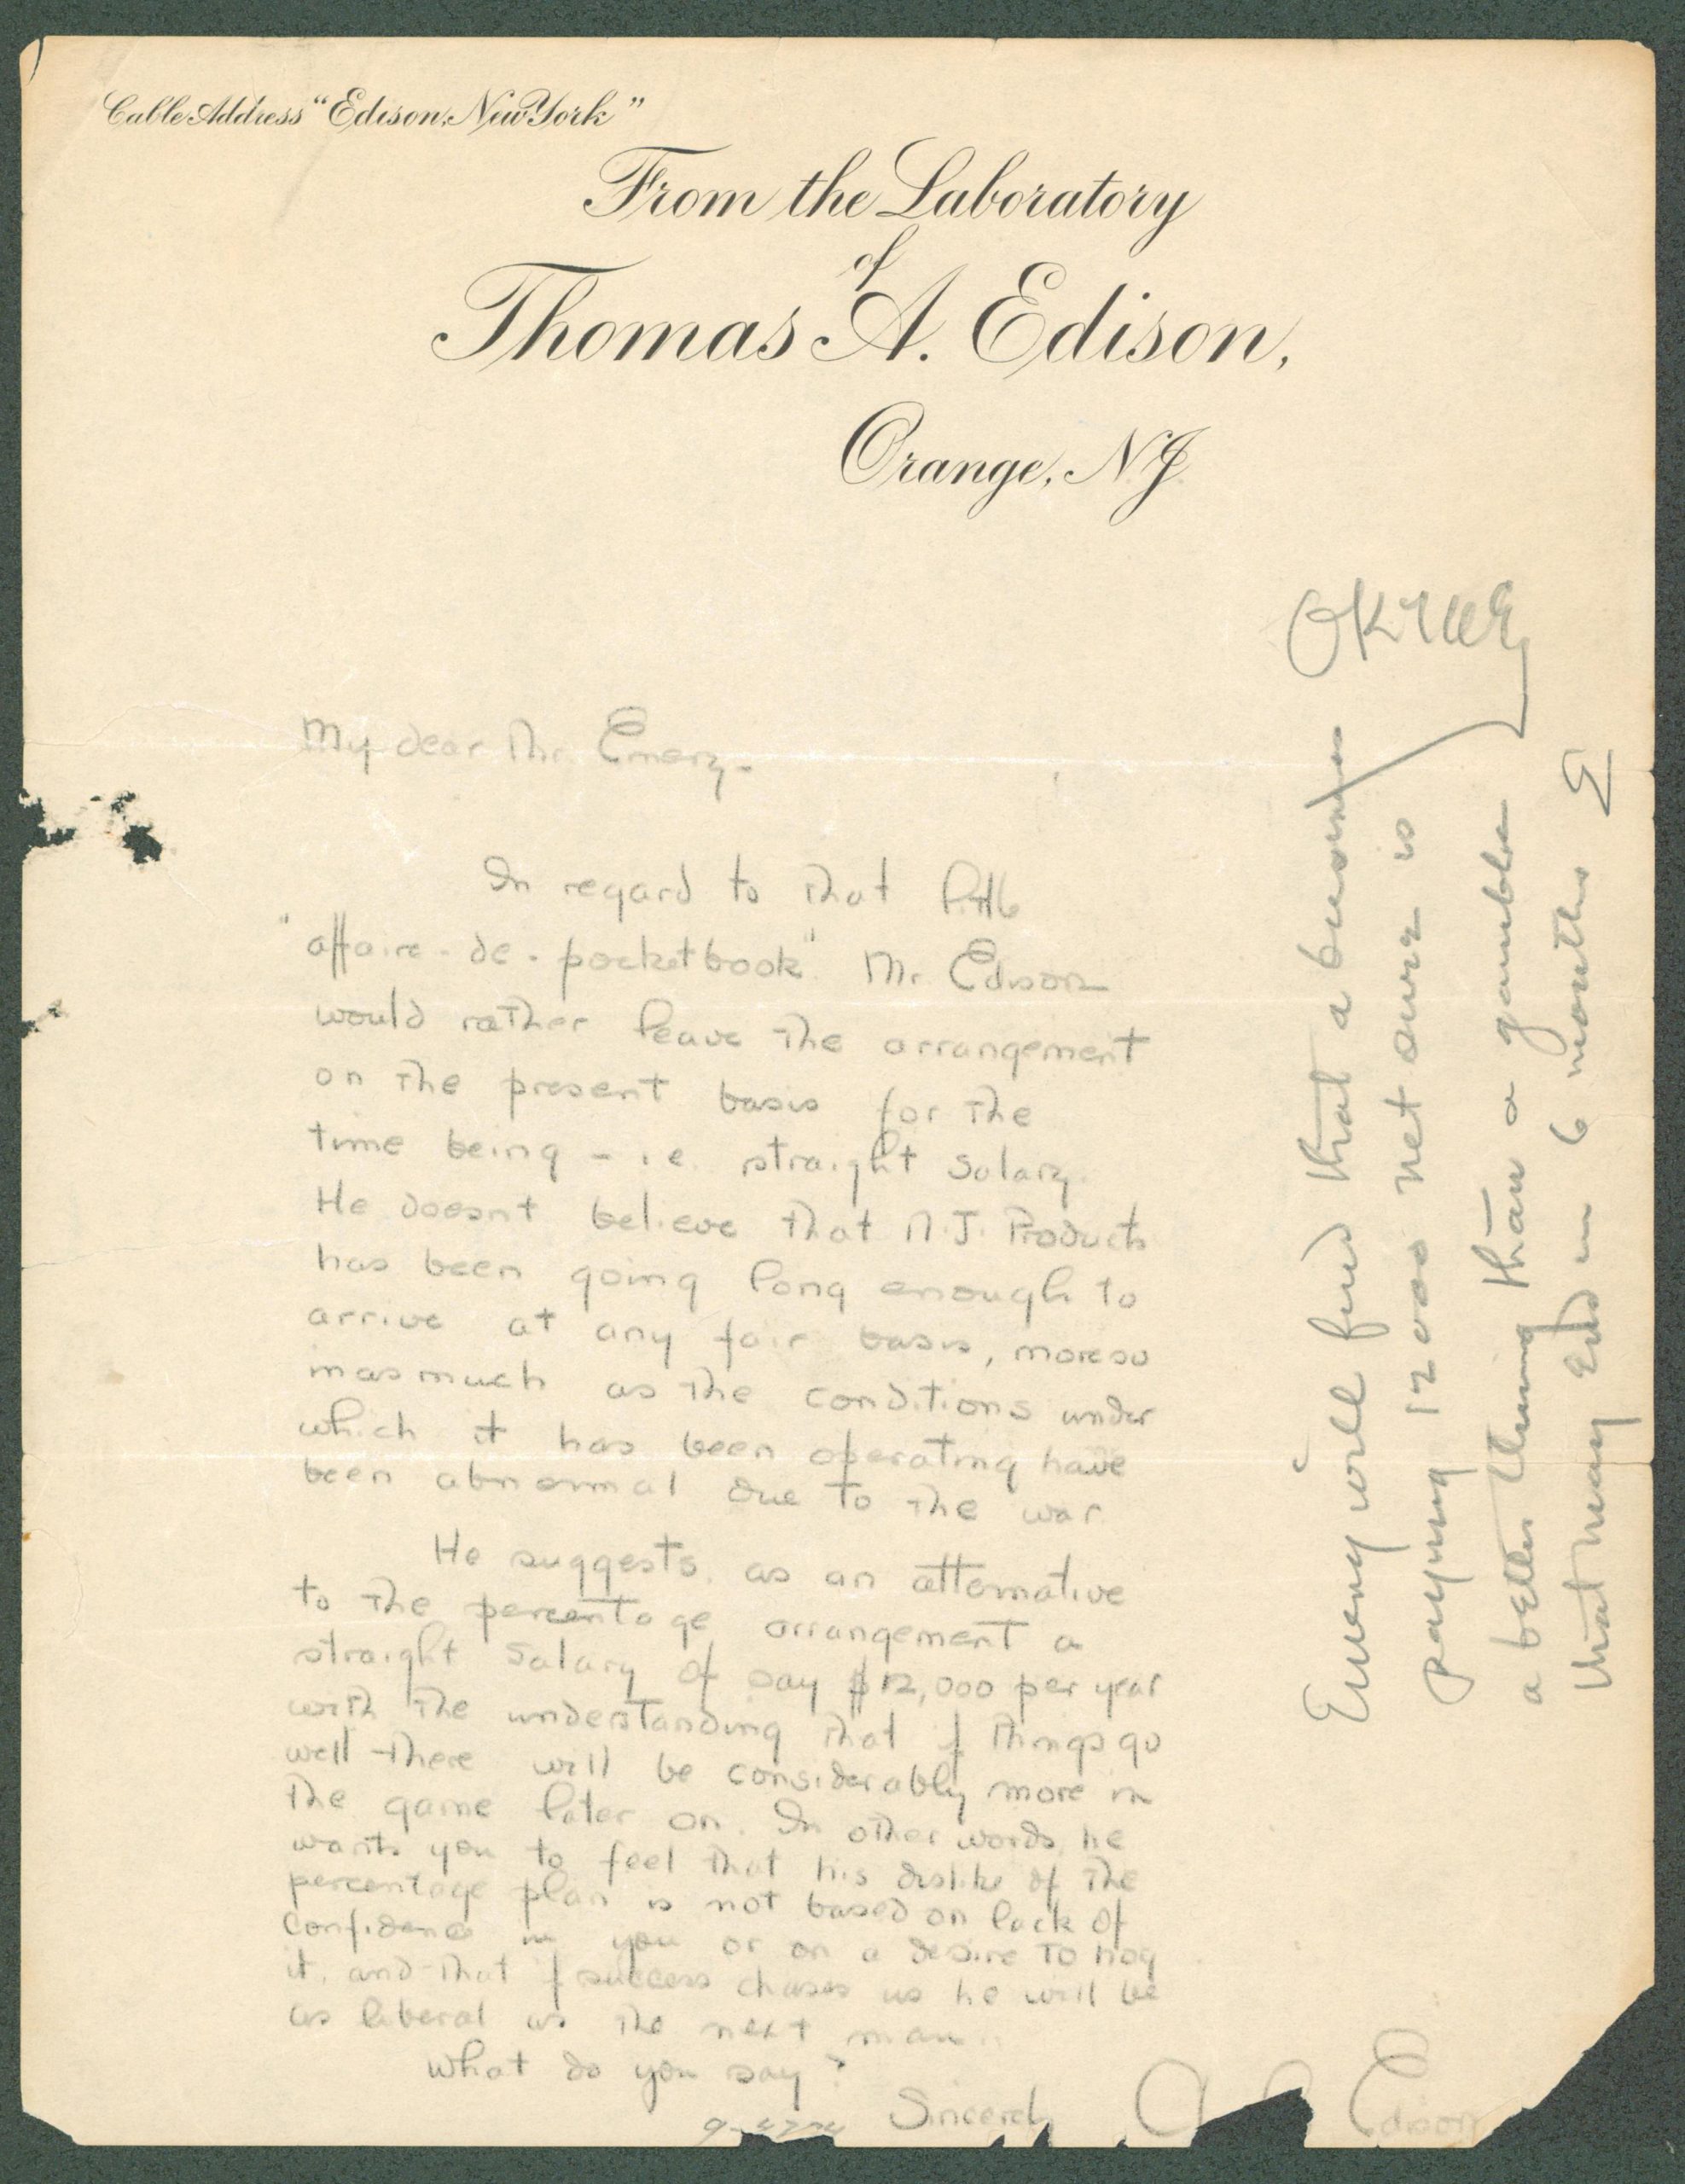 Cable Address "Edison, New York"
From the Laboratory
of
Thomas A. Edison,
Orange, N.J.
My dear Mr. Emery-
In regard to that little
"affaire-de-pocketbook" Mr. Edison
would rather leave the arrangement
on the present basis for the
time being - i.e. straight salary.
He doesnt believe that N.J. Products
has been going long enough to
arrive at any fair basis, moreso
inasmuch as the conditions under
which it has been operating have
been abnormal due to the war.
He suggests, as an alternative
to the percentage arrangement a
straight salary of say $12,000 per year
with the understanding that if things go
well there will be considerably more in
the game later on. In other words, he
wants you to feel that his dislike of the
percentage plan is not based on lack of
confidence in you or on a desire to hog
it, and that if success chases us he will be
as liberal as the next man.
What do you say?
Sincerely
Edison
OK
Emery will find that a business
paying 12000 net over is
a better thing than a gamble
that may end in 6 months E